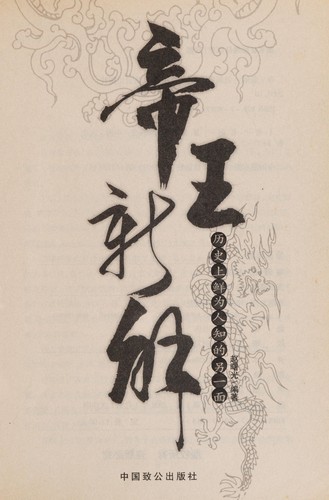 帝王新解
历史上鲜为人知的另一面
赵曙光·编著
中国致公出版社